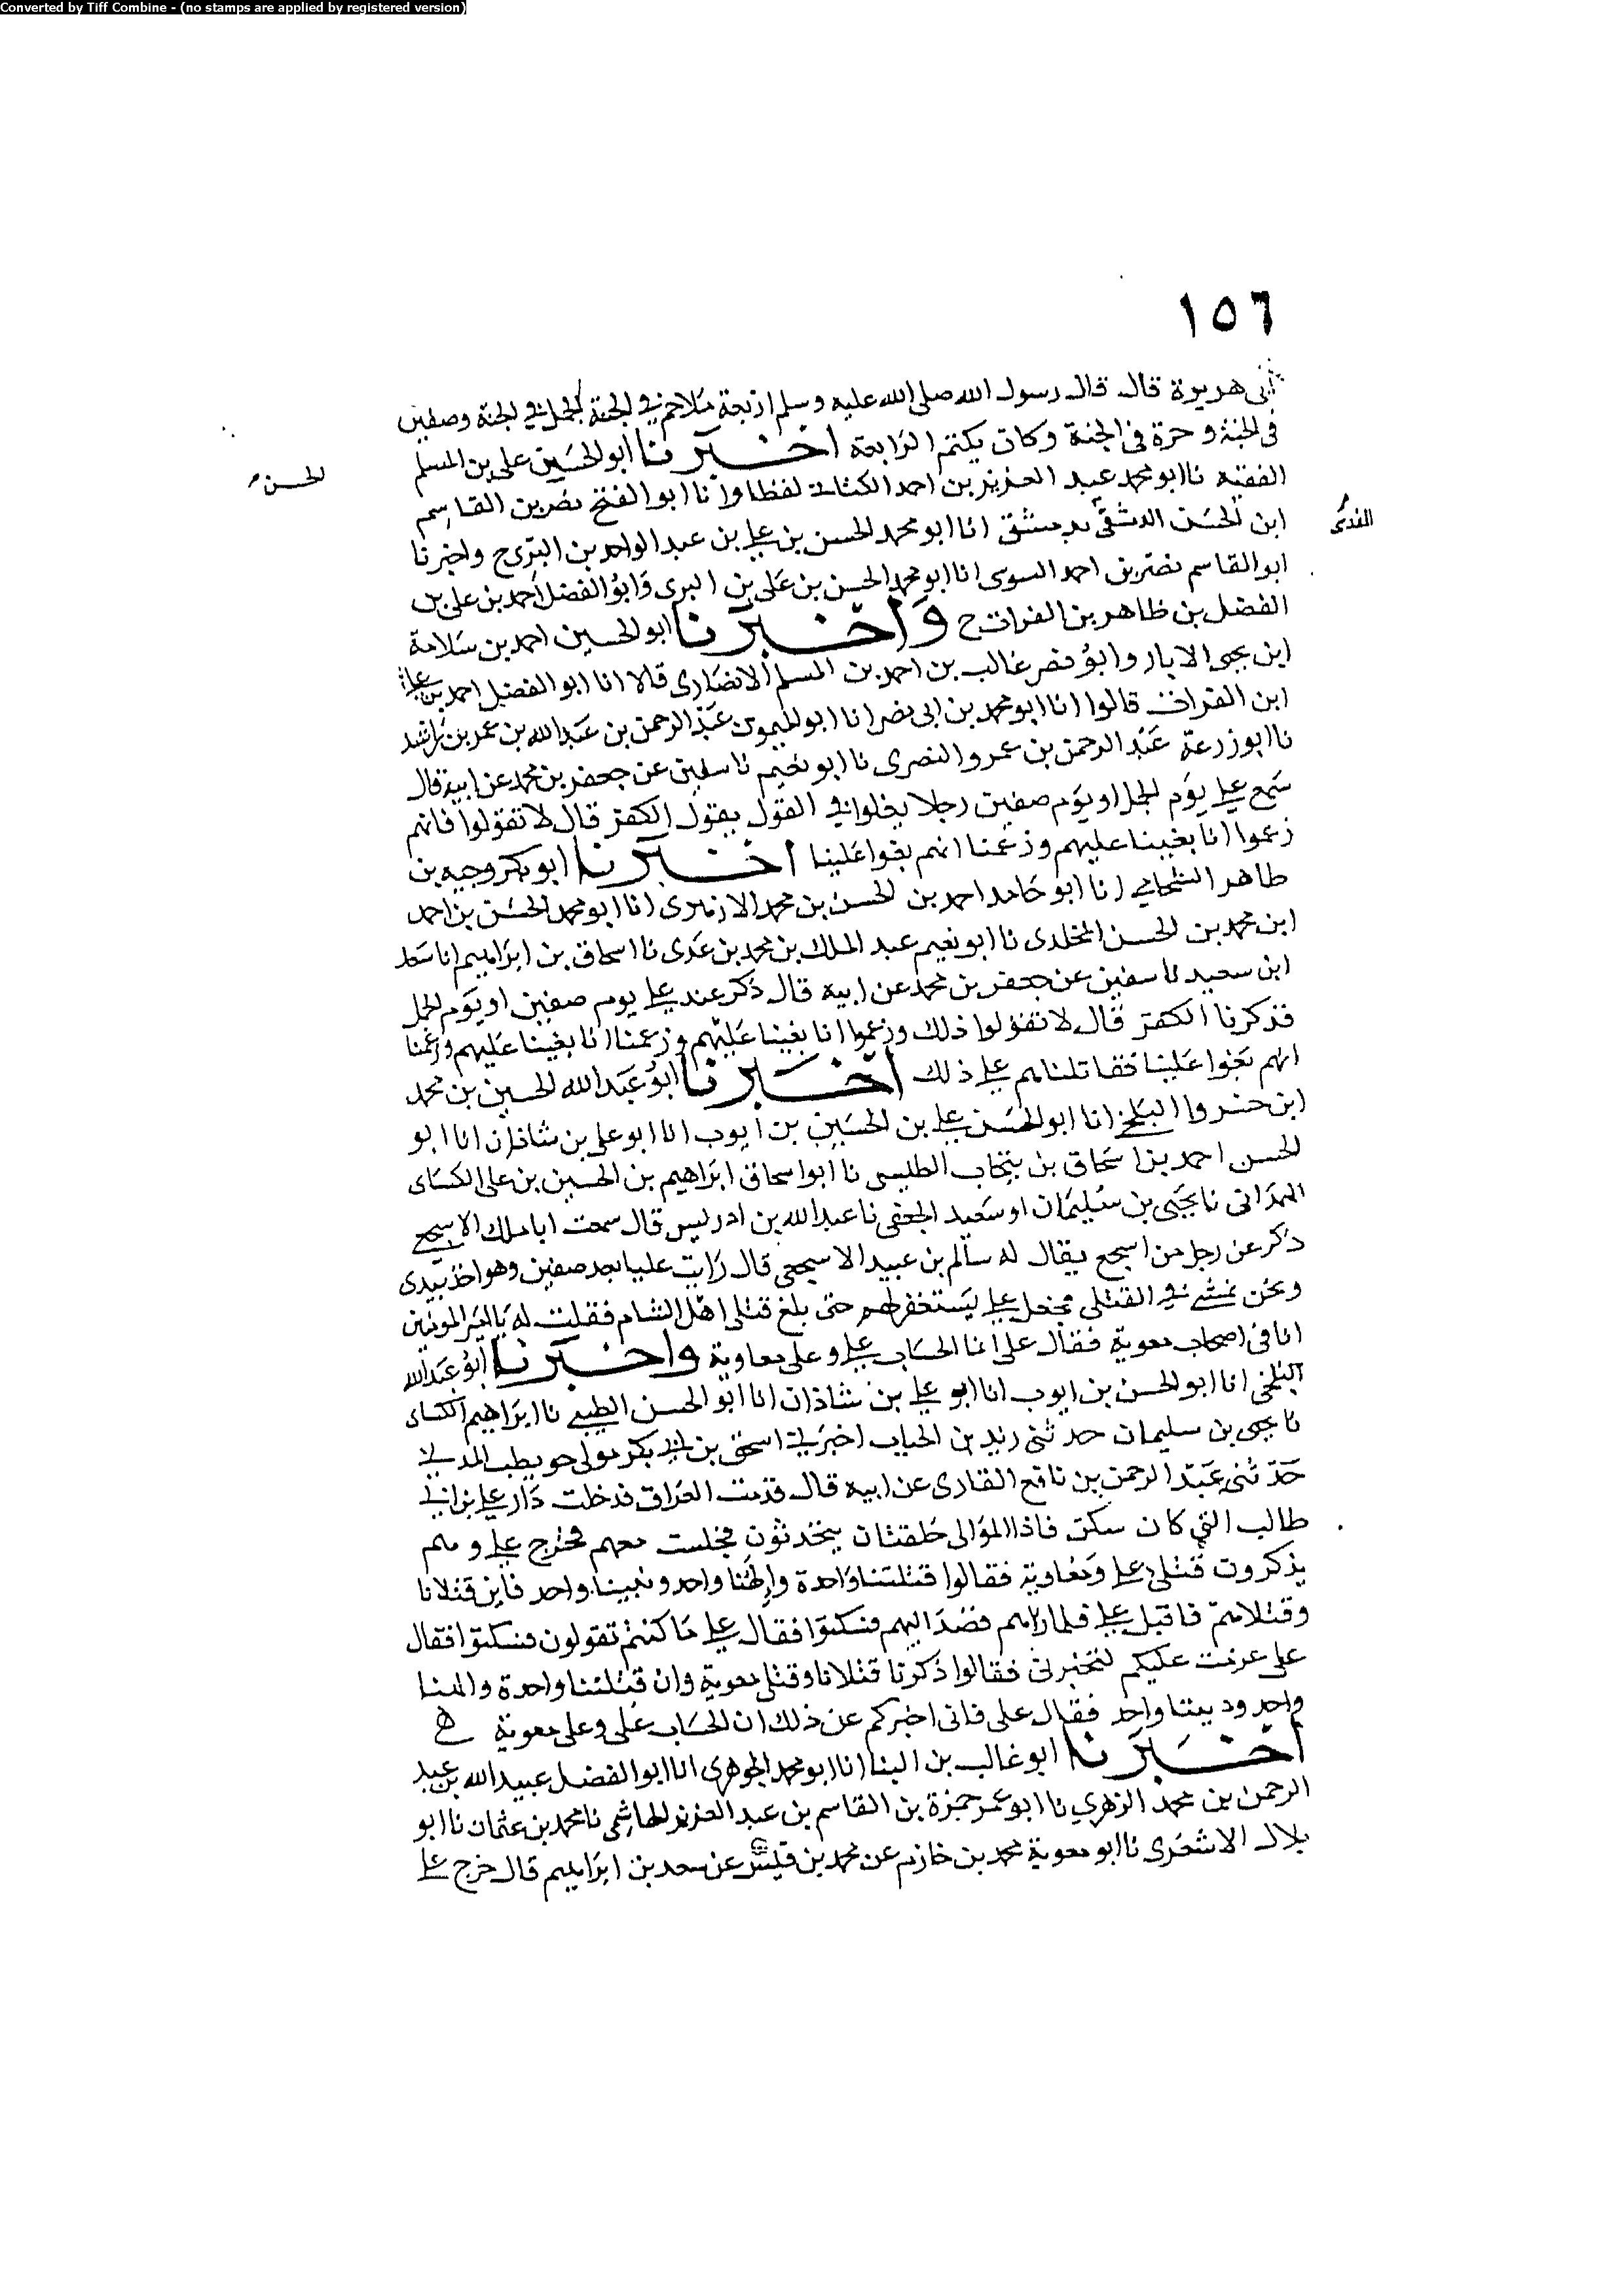 Converted by Tiff Combine - (no stamps are applied by registered version)
١٥٦
أبى هريرة قال قال رسول الله صلى الله عليه وسلم اربعة ملاحم في الجنة الجمل في الجنة وصفين
في الجنة وحرة في الجنة وكان يكتم الرابعة اخبرنا ابو الحسين على بن المسلم
الحسن
الفقيه نا ابو محمد عبد العزيز بن احمد الكتانى لفظا وانا ابو الفتح نصر بن القاسم
المقدسى
ابن الحسن الدمشقى بدمشق انا ابو محمد الحسن بن على بن عبد الواحد بن البرى ح واخبرنا
ابو القاسم نصر بن احمد السوسى انا ابو محمد الحسن بن على بن البرى وابو الفضل احمد بن على بن
الفضل بن طاهر بن الفرات ح واخبرنا ابو الحسين احمد بن سلامة
ابن يحيى الابار وابو نصر غالب بن احمد بن المسلم الانصارى قالا انا ابو الفضل احمد بن على
ابن الفرات قالوا انا ابو محمد بن ابى نصر انا ابو الميمون عبد الرحمن بن عبد الله بن عمر بن راشد
نا ابو زرعة عبد الرحمن بن عمرو النصرى نا ابو نعيم نا سفين عن جعفر بن محمد عن ابيه قال
سمع على يوم الجمل او يوم صفين رجلا يغلوا في القول يقول الكفر قال لا تقولوا فانهم
زعموا انا بغينا عليهم وزعمنا انهم بغوا علينا اخبرنا ابو بكر وجيه بن
طاهر الشحامى انا ابو حامد احمد بن الحسن بن محمد الازهرى انا ابو محمد الحسن بن احمد
ابن محمد بن الحسن المخلدى نا ابو نعيم عبد الملك بن محمد بن عدى نا اسحاق بن ابراهيم انا سعد
ابن سعيد نا سفين عن جعفر بن محمد عن ابيه قال ذكر عند على يوم صفين او يوم الجمل
فذكرنا الكفر قال لا تقولوا ذلك وزعموا انا بغينا عليهم وزعمنا انا بغينا عليهم وزعمنا
انهم بغوا علينا فقاتلناهم على ذلك اخبرنا ابو عبد الله الحسين بن محمد
ابن خسروا البلخى انا ابو الحسن على بن الحسين بن ايوب انا ابو على بن شاذان انا ابو
الحسن احمد بن اسحاق بن ينجاب الطيبى نا ابو اسحاق ابراهيم بن الحسين بن على الكسائى
الهمدانى نا يحيى بن سليمان او سعيد الجعفى نا عبد الله بن ادريس قال سمعت ابا ملك الاشجعى
ذكر عن رجل من اشجع يقال له سالم بن عبيد الاشجعى قال رايت عليا بعد صفين وهو اخذ بيدى
ونحن نمشى في القتلى فجعل على يستغفر لهم حتى بلغ قتلى اهل الشام فقلت له يا امير المومنين
انا في اصحاب معوية فقال على انما الحساب على وعلى معاوية واخبرنا ابو عبد الله
البلخى انا ابو الحسن بن ايوب انا ابو على بن شاذان انا ابو الحسن الطيبى نا ابراهيم الكسائى
نا يحيى بن سليمان حدثنى زيد بن الحباب اخبرنى اسحق بن ابى بكر مولى حويطب المدنى
حدثنى عبد الرحمن بن نافع القارى عن ابيه قال قدمت العراق فدخلت دار على بن ابى
طالب التى كان سكن فاذا الموالى حلقتان يتحدثون فجلست معهم فخرج على وهم
يذكرون قتلى على ومعاوية فقالوا قبلتنا واحدة والهنا واحد ونبينا واحد فاين قتلانا
وقتلاهم فاقبل على فلما راهم قصد اليهم فسكتوا فقال على ما كنتم تقولون فسكتوا فقال
على عزمت عليكم لتخبرنى فقالوا ذكرنا قتلانا وقتلى معوية وان قبلتنا واحدة والهنا
واحد وديننا واحد فقال على فانى اخبركم عن ذلك ان الحساب على وعلى معوية ه
اخبرنا ابو غالب بن البنا انا ابو محمد الجوهرى انا ابو الفضل عبيد الله بن عبد
الرحمن بن محمد الزهرى نا ابو عمر حمزة بن القاسم بن عبد العزيز الهاشمى نا محمد بن عثمان نا ابو
بلال الاشعرى نا ابو معوية محمد بن خازم عن محمد بن قيس عن سعد بن ابراهيم قال خرج على